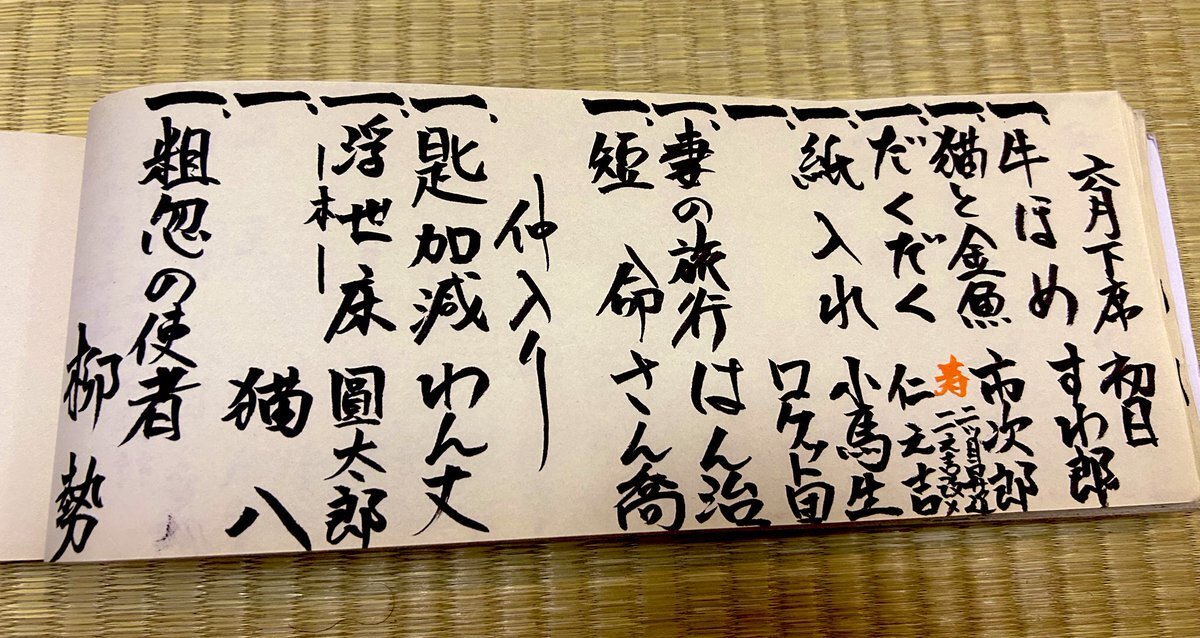 六月下席 初日
一、牛ほめ すわ郎
一、猫と金魚 市次郎
寿 二ツ目昇進
二之吉改メ
一、だくだく 仁之吉
一、紙入れ 小馬生
一、 ロケット団
一、妻の旅行 はん治
一、短命 さん喬
仲入り
一、匙加減 わん丈
一、浮世床 圓太郎
―本―
一、 猫八
一、粗忽の使者
柳勢